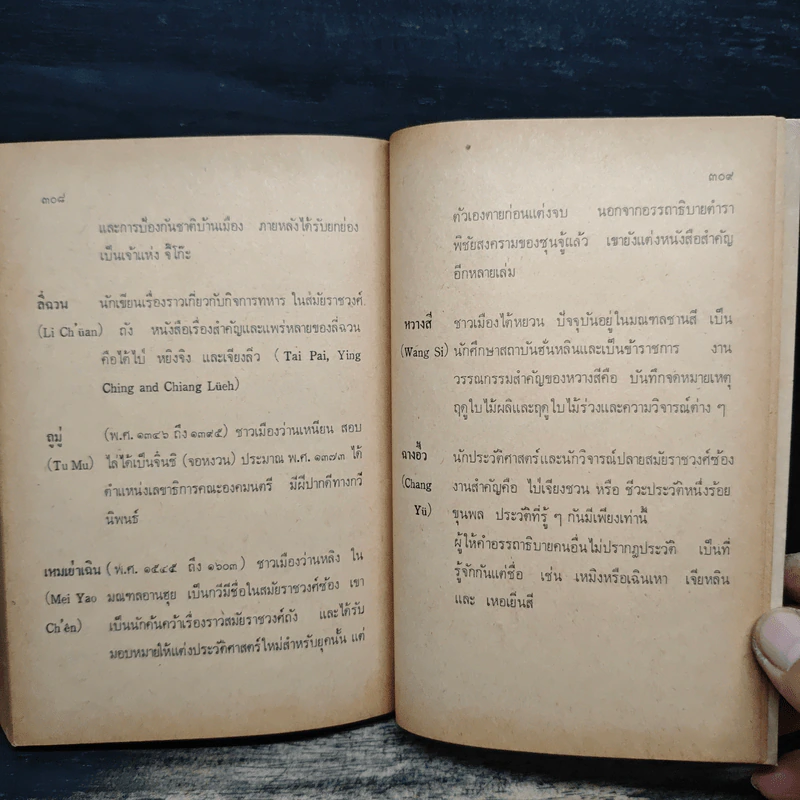 ๓๐๘
และการป้องกันชาติบ้านเมือง ภายหลังได้รับยกย่อง
เป็นเจ้าแห่ง จิโก๊ะ
ลี่ฉวน นักเขียนเรื่องราวเกี่ยวกับกิจการทหาร ในสมัยราชวงค์
(Li Ch'üan) ถัง หนังสือเรื่องสำคัญและแพร่หลายของลี่ฉวน
คือไต้ไป๋ หยิงจิง และเจียงลิ่ว (Tai Pai, Ying
Ching and Chiang Lüeh)
ถูมู่ (พ.ศ. ๑๓๔๖ ถึง ๑๓๙๕) ชาวเมืองว่านเหนียน สอบ
(Tu Mu) ไล่ได้เป็นจิ้นซิ (จอหงวน) ประมาณ พ.ศ. ๑๓๗๓ ได้
ตำแหน่งเลขาธิการคณะองคมนตรี มีฝีปากดีทางกวี
นิพนธ์
เหมเย่าเฉิน (พ.ศ. ๑๕๔๕ ถึง ๑๖๐๓) ชาวเมืองว่านหลิง ใน
(Mei Yao มณฑลอานฮุย เป็นกวีมีชื่อในสมัยราชวงค์ซ้อง เขา
Ch'ên) เป็นนักค้นคว้าเรื่องราวสมัยราชวงค์ถัง และได้รับ
มอบหมายให้แต่งประวัติศาสตร์ใหม่สำหรับยุคนั้น แต่
๓๐๙
ตัวเองตายก่อนแต่งจบ นอกจากอรรถาธิบายตำรา
พิชัยสงครามของซุนจู้แล้ว เขายังแต่งหนังสือสำคัญ
อีกหลายเล่ม
หวางสี ชาวเมืองไต้หยวน ปัจจุบันอยู่ในมณฑลชานสี เป็น
(Wang Si) นักศึกษาสถาบันฮั่นหลินและเป็นข้าราชการ งาน
วรรณกรรมสำคัญของหวางสีคือ บันทึกจดหมายเหตุ
ฤดูใบไม้ผลิและฤดูใบไม้ร่วงและความวิจารณ์ต่าง ๆ
ฉางอื้ว นักประวัติศาสตร์และนักวิจารณ์ปลายสมัยราชวงศ์ซ้อง
(Chang งานสำคัญคือ ไป่เจียงชวน หรือ ชีวะประวัติหนึ่งร้อย
Yü) ขุนพล ประวัติที่รู้ ๆ กันมีเพียงเท่านี้
ผู้ให้คำอรรถาธิบายคนอื่นไม่ปรากฏประวัติ เป็นที่
รู้จักกันแต่ชื่อ เช่น เหมิงหรือเฉินเหา เจียหลิน
และ เหอเยิ่นสี